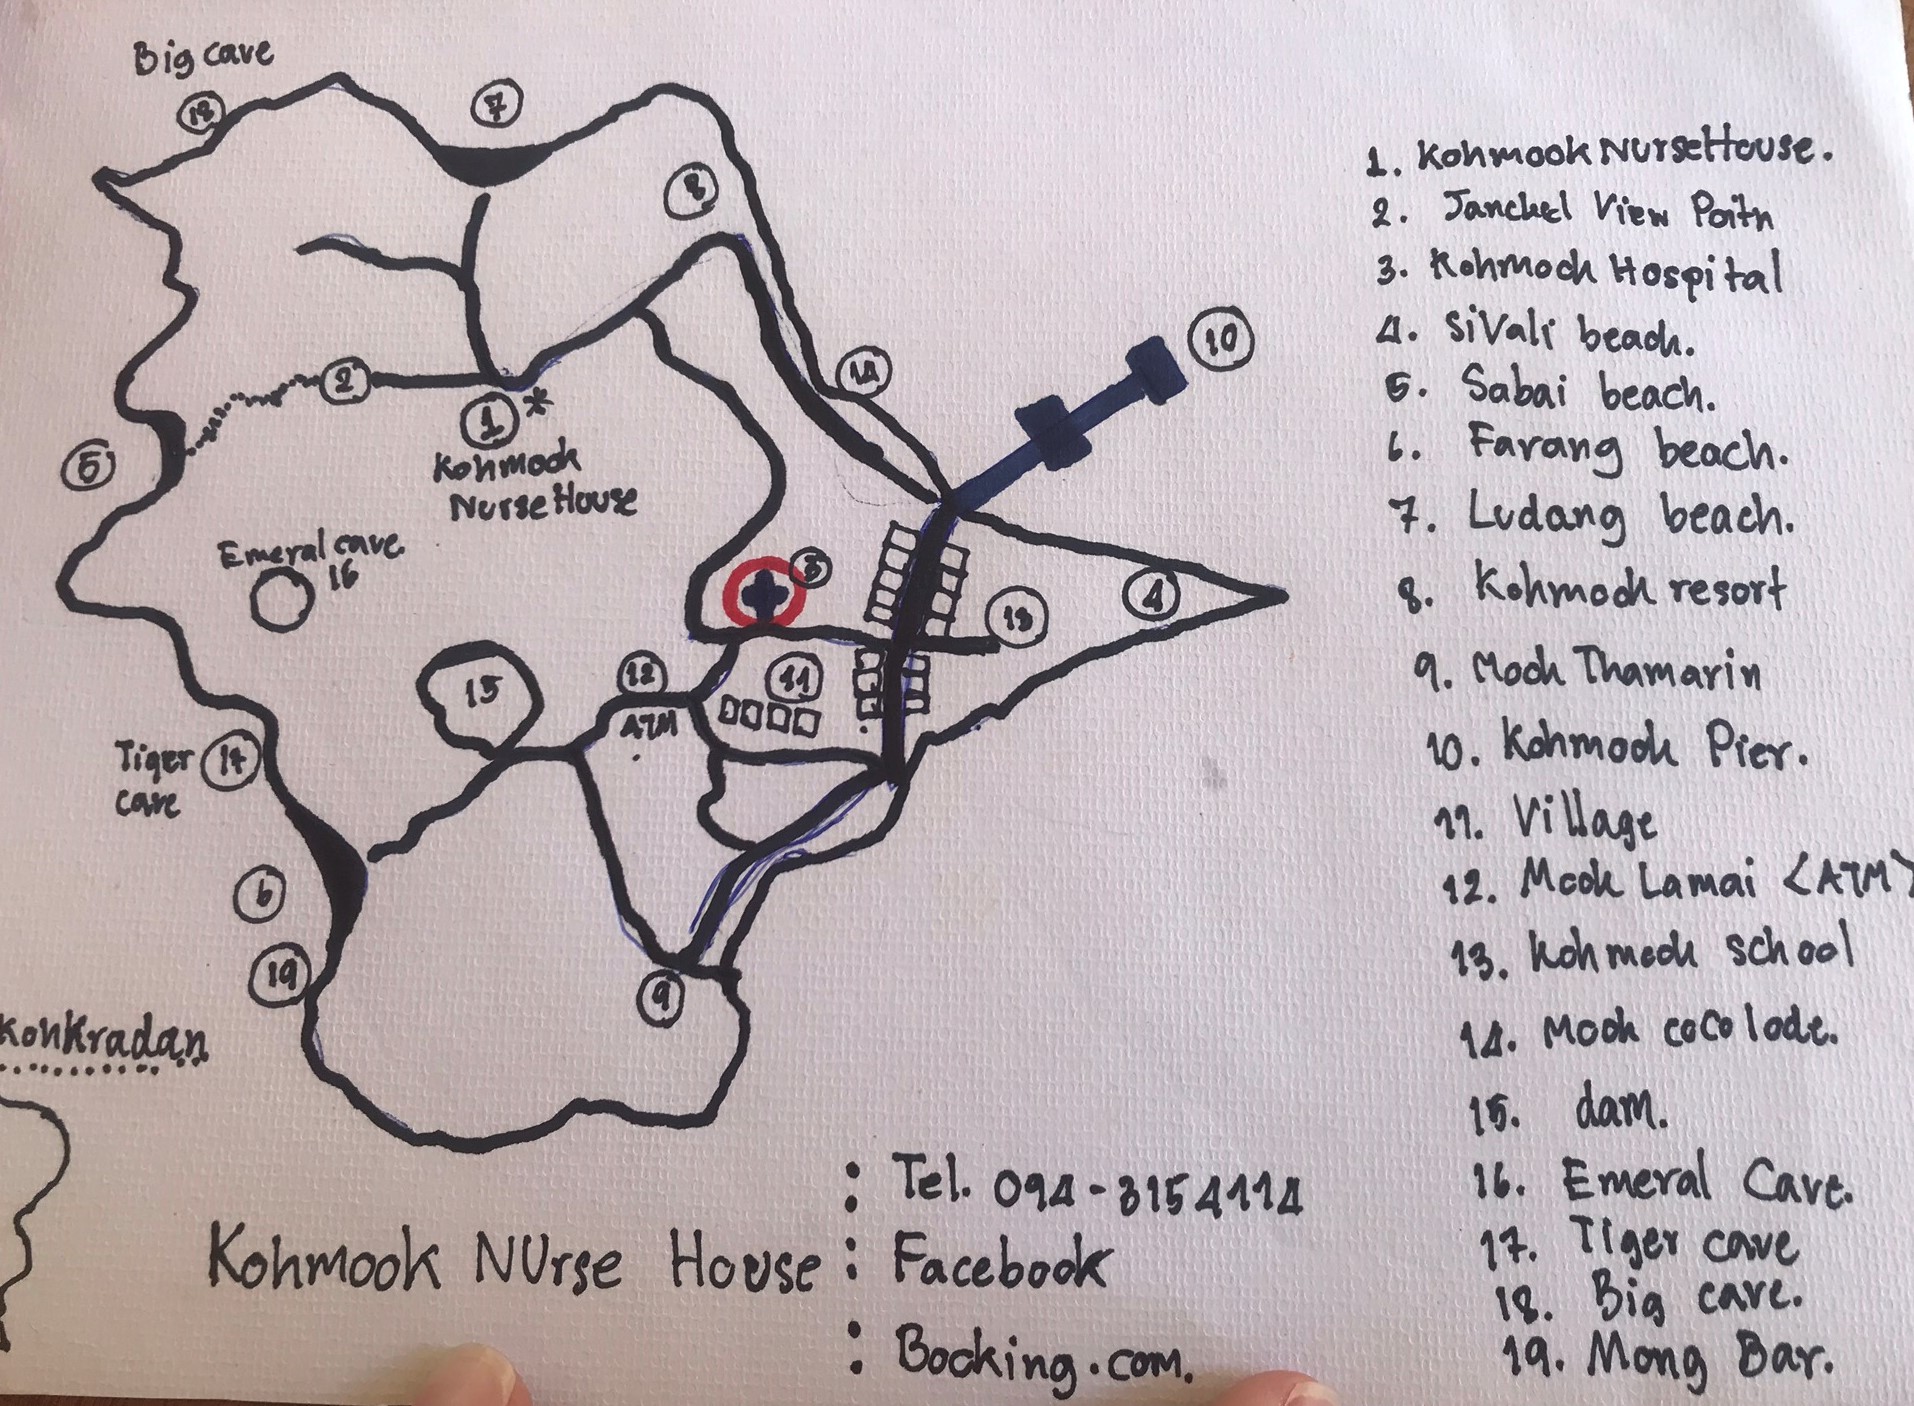 Big cave
18
7
8
14
10
2
1 *
Kohmook
Nurse House
5
Emeral cave.
16
3
4
13
12
ATM
11
15
Tiger
cave
17
6
19
9
KohKradan
1. Kohmook NurseHouse.
2. View Poitn
3. Kohmook Hospital
4. SiVali beach.
5. Sabai beach.
6. Farang beach.
7. Ludang beach.
8. Kohmook resort
9. Mook Thamarin
10. Kohmook Pier.
11. Village
12. Mook Lamai <ATM>
13. Kohmook school
14. Mook coco lode.
15. dam.
16. Emeral Cave.
17. Tiger cave
18. Big cave.
19. Mong Bar.
: Tel. 094-3154114
Kohmook NUrse House : Facebook
: Booking.com.